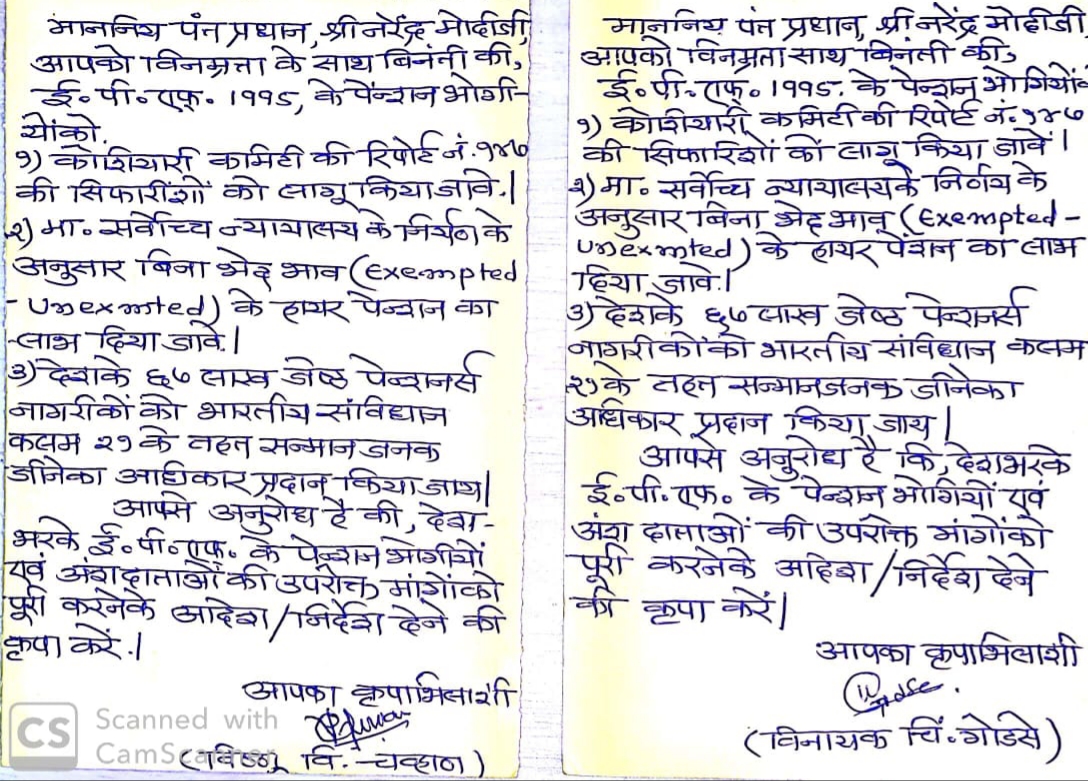 माननिय पंत प्रधान, श्री नरेंद्र मोदीजी,
आपको विनम्रता के साथ बिनंती की,
ई॰पी॰एफ॰ १९९५, के पेंन्शन भोगी-
योंको.
१) कोशियारी कमिटी की रिपोर्ट नं. १४७
की सिफारीशों को लागू किया जावे.|
२) मा॰ सर्वोच्च न्यायालय के निर्णय के
अनुसार बिना भेद भाव (Exempted
- Unexmted) के हायर पेन्शन का
लाभ दिया जावे.|
३) देशके ६७ लाख जेष्ठ पेन्शनर्स
नागरीकों को भारतीय संविधान
कलम २१ के तहत सन्मान जनक
जीनेका अधिकार प्रदान किया जाय|
आपसे अनुरोध है की, देश-
भरके ई॰पी॰एफ॰ के पेन्शन भोगीयों
एवं अंशदाताओं की उपरोक्त मांगोंको
पूरी करनेके आदेश/निर्देश देने की
कृपा करें.|
आपका कृपाभिलाशी
(विष्णू वि. चव्हाण)
CS Scanned with
CamScanner
माननिय पंत प्रधान, श्री नरेंद्र मोदीजी
आपको विनम्रता साथ बिनंती की,
ई॰पी॰एफ॰ १९९५. के पेन्शन भोगियों
१) कोशियारी कमिटी की रिपोर्ट नं. १४७
की सिफारिशों को लागू किया जावें |
२) मा॰ सर्वोच्च न्यायालयके निर्णय के
अनुसार बिना भेद भाव (Exempted -
Unexmted) के हायर पेंशन का लाभ
दिया जावे.|
३) देशके ६७ लाख जेष्ठ पेन्शनर्स
नागरीकोंको भारतीय संविधान कलम
२१ के तहत सन्मानजनक जीनेका
अधिकार प्रदान किया जाय |
आपसे अनुरोध है कि, देशभरके
ई॰पी॰एफ॰ के पेन्शन भोगियों एवं
अंश दाताओं की उपरोक्त मांगोंको
पूरी करनेके आदेश/निर्देश देने
की कृपा करें|
आपका कृपाभिलाशी
(विनायक चिं॰ गोडसे)